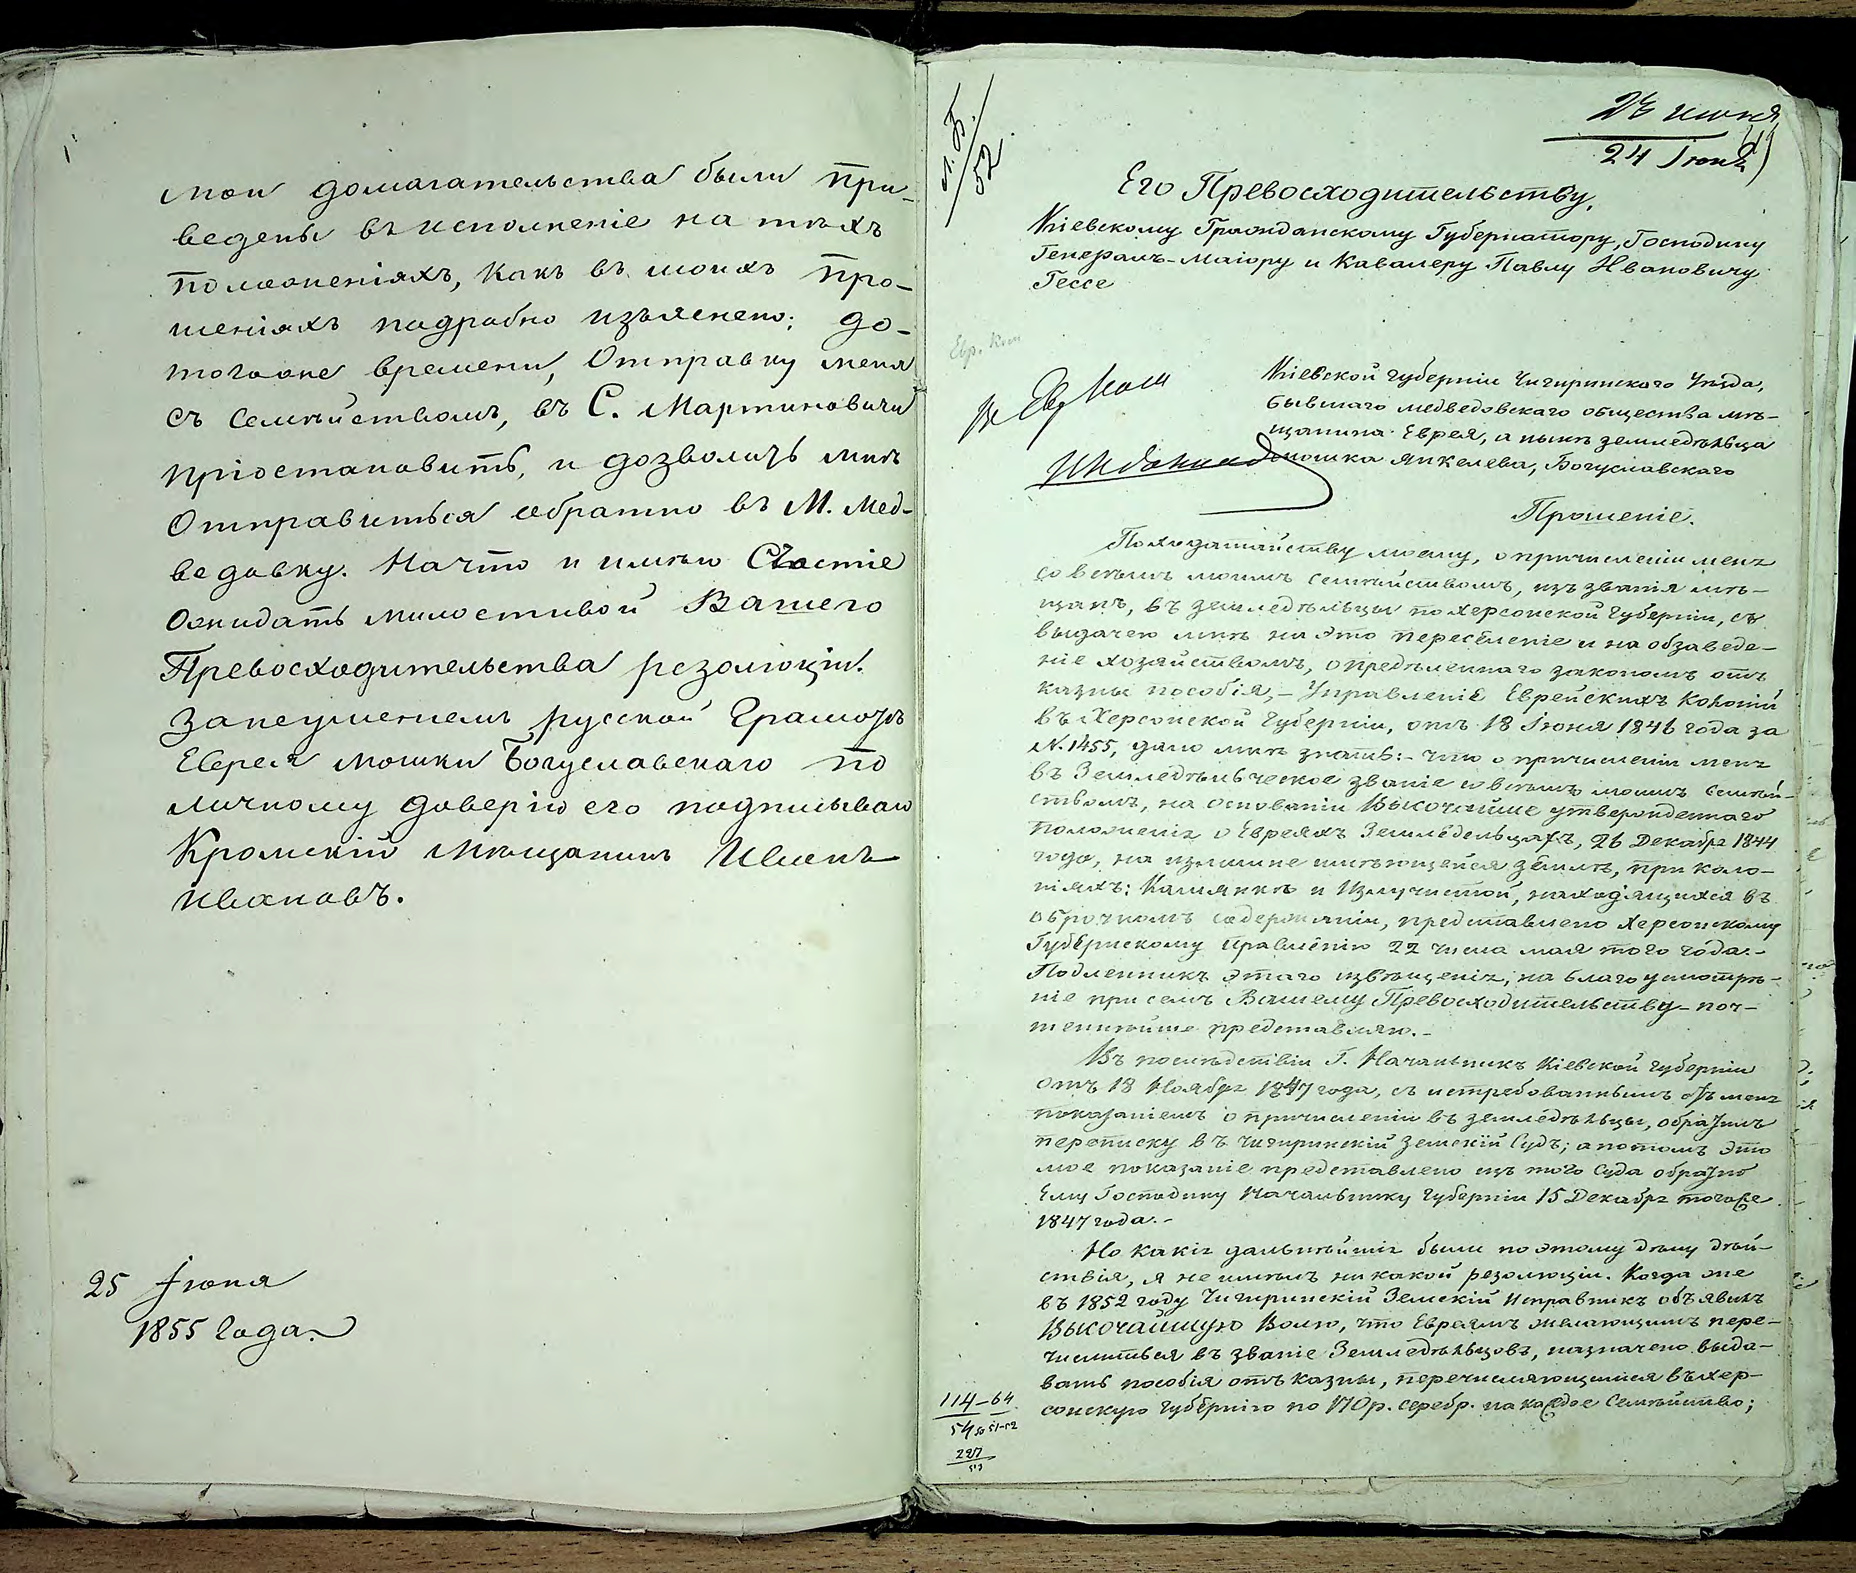 мои домагательства были при-
ведены въ исполненіе на тѣхъ
положеніяхъ, какъ въ моихъ про-
шеніяхъ подробно изъяснено; до-
тогоже времени, Отправку меня
съ Семѣйствомъ, въ С. Мартиновичи
пріостановить, и дозволить мнѣ
Отправиться обратно въ М. Мед-
ведовку. На что и имѣю Счастіе
Ожидать милостивой Вашего
Превосходительства резолюціи.
За неуменіемъ русской Грамотѣ
Еврея Мошки Богуславскаго по
личному доверію его подписываю
Кромскій Мѣщанинъ
Ивановъ.
25 Іюня
1855 Года.
24 Іюня
Его Превосходительству,
Кіевскому Гражданскому Губернатору, Господину
Генералъ-Маіору и Кавалеру Павлу Ивановичу
Гессе
Кіевской губерніи Чигиринскаго Уѣзда,
бывшаго медведовскаго общества мѣ-
щанина Еврея, а нынѣ земледѣльца
Мошка Янкелева, Богуславскаго
Прошеніе.
По ходатайству моему, о причисленіи меня
со всѣмъ моимъ семѣйствомъ, изъ званія мѣ-
щанъ, въ земледѣльцы по Херсонской Губерніи, съ
выдачею мнѣ на это переселеніе и на обзаведе-
ніе хозяйствомъ, опредѣленнаго закономъ отъ
казны пособія,- Управленіе Еврейскихъ Колоній
въ Херсонской Губерніи, отъ 18 Іюня 1846 года за
N. 1455, дало мнѣ знать:- что о причисленіи меня
въ Земледѣльческое званіе со всѣмъ моимъ семѣй-
ствомъ, на основаніи Высочайше утвержденнаго
Положенія о Евреяхъ Земледельцахъ, 26 Декабря 1844
года, на излишне имѣющейся землѣ, при коло-
ніяхъ: и Излучистой, находящихся въ
оброчномъ содержаніи, представлено Херсонскому
Губернскому Правленію 22 числа мая того года.-
Подленникъ этаго извѣщенія, на благоусмотрѣ-
ніе при семъ Вашему Превосходительству поч-
теннѣйше представляю.-
Въ послѣдствіи Г. Начальникъ Кіевской Губерніи
отъ 18 Ноября 1847 года, съ истребованнымъ отъ меня
показаніемъ о причисленіи въ земледѣльцы, обратилъ
переписку въ Чигиринскій Земскій Судъ; а потомъ это
мое показаніе представлено изъ того Суда обратно
Ему Господину Начальнику Губерніи 15 Декабря тогоже
1847 года.-
Но какія дальнѣйшія были по этому дѣлу дѣй-
ствія, я не имѣлъ никакой резолюціи. Когда же
въ 1852 году Чигиринскій Земскій Исправникъ объявилъ
Высочайшую Волю, что Евреямъ желающимъ пере-
числиться въ званіе Земледѣльцовъ, назначено выда-
вать пособія отъ казны, перечисляющимся въ Хер-
сонскую Губернію по 170 р. серебр. на каждое Семѣйство;
114-64